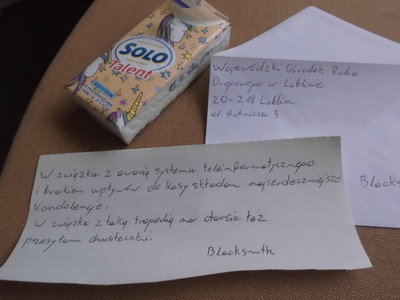 SOLO
Talent
Wojewódzki Ośrodek Ruchu
Drogowego w Lublinie
20-218 Lublin
ul. Hutnicza 3
Blacksm
W związku z awarią systemu teleinformatycznego
i brakiem wpływów do kasy składam najserdeczniejsze
kondolencje.
W związku z taką tragedią na otarcie łez
przesyłam chusteczki.
Blacksmith